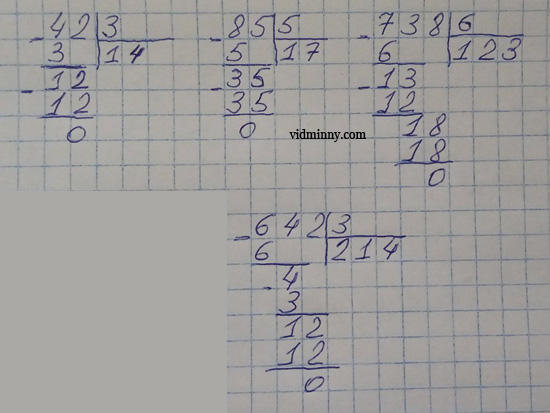 -42|3
3|14
-12
12
0
-85|5
5|17
-35
35
0
-738|6
6|123
-13
12
18
18
0
vidminny.com
-642|3
6|214
-4
3
12
12
0